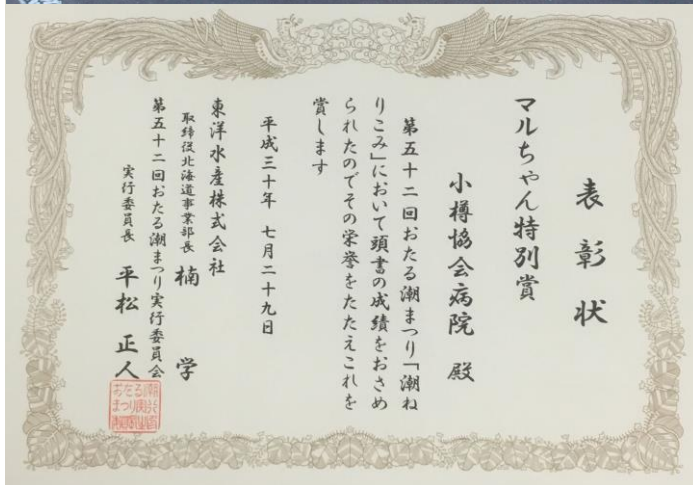 表彰状
マルちゃん特別賞
小樽協会病院 殿
第五十二回おたる潮まつり「潮ね
りこみ」において頭書の成績をおさめ
られたのでその栄誉をたたえこれを
賞します
平成三十年 七月二十九日
東洋水産株式会社
取締役北海道事業部長 楠 学
第五十二回おたる潮まつり実行委員会
実行委員長 平松 正人